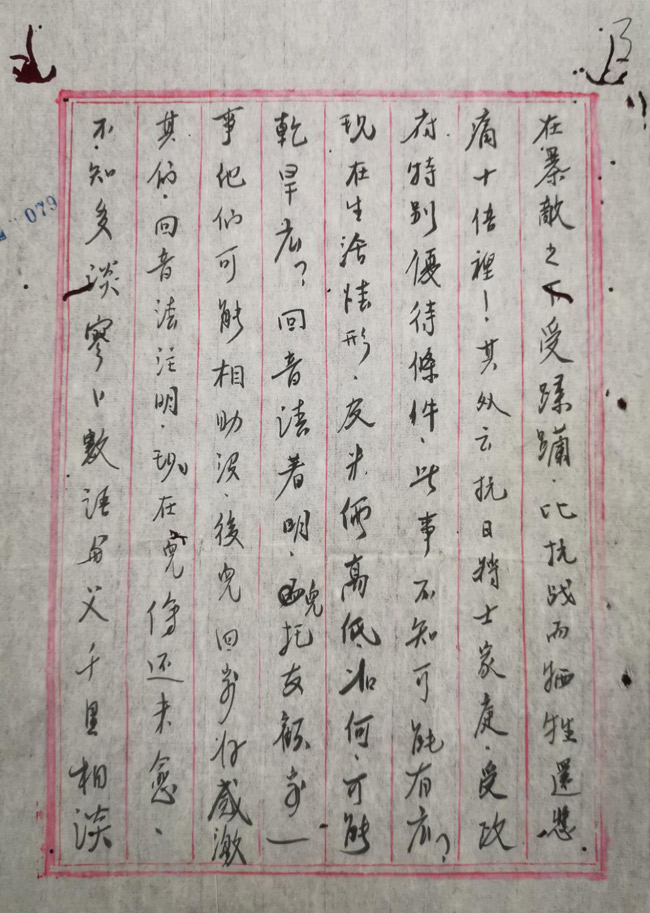 在暴敵之下受蹂躪．比抗战而牺牲還悲
痛十倍裡！其次云抗日將士家庭．受政
府特别優待條件．此事不知可能有
现在生活情形．及米價高低如何．可能
乾旱？回音請着明．兒托友顧 一
事他们可能相助没．後兒回家好感激
其们．回音請注明．现在兒傷还未愈．
不知多談寥卜數語与父千里相談
079